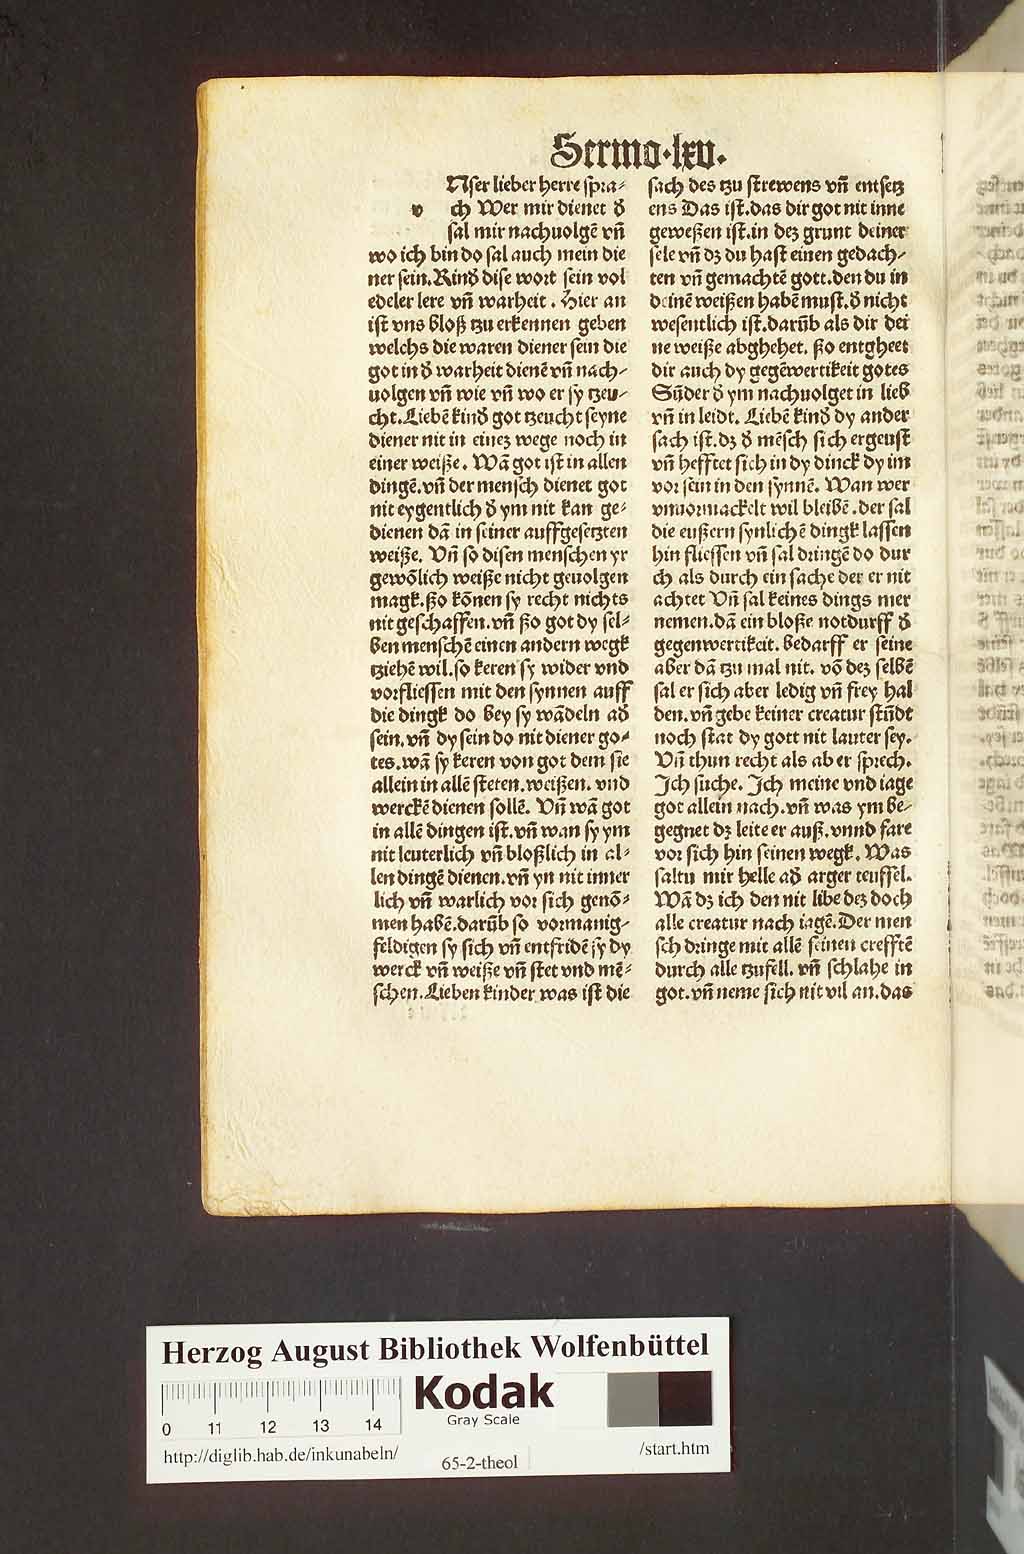 Sermo·lxv.
Nser lieber herre spra⸗
v ch Wer mir dienet ð
sal mir nachuolgē vñ
wo ich bin do sal auch mein die
ner sein. Kinð dise wort sein vol
edeler lere vñ warheit. Hier an
ist vns bloß tzu erkennen geben
welchs die waren diener sein die
got in ð warheit dienē vñ nach⸗
uolgen vñ wie vñ wo er sy tzeu⸗
cht. Liebē kinð got tzeucht seyne
diener nit in eineʒ wege noch in
einer weiße. Wā got ist in allen
dingē. vñ der mensch dienet got
nit eygentlich ð ym nit kan ge⸗
dienen dā in seiner auffgesetzten
weiße. Vñ so disen menschen yr
gewōlich weiße nicht geuolgen
magk. ßo kōnen sy recht nichts
nit geschaffen. vñ ßo got dy sel⸗
ben menschē einen andern wegk
tziehē wil. so keren sy wider vnd
vorfliessen mit den synnen auff
die dingk do bey sy wādeln að
sein. vñ dy sein do nit diener go⸗
tes. wā sy keren von got dem sie
allein in allē steten. weißen. vnd
werckē dienen sollē. Vñ wā got
in allē dingen ist. vñ wan sy ym
nit leuterlich vñ bloßlich in al⸗
len dingē dienen. vñ yn nit inner
lich vñ warlich vor sich genō⸗
men habē. darūb so vormanig⸗
feldigen sy sich vñ entfridē sy dy
werck vñ weiße vñ stet vnd mē⸗
schen. Lieben kinder was ist die
sach des tzu strewens vñ entsetz
ens Das ist. das dir got nit inne
geweßen ist. in deʒ grunt deiner
sele vñ dʒ du hast einen gedach⸗
ten vñ gemachtē gott. den du in
deinē weißen habē must. ð nicht
wesentlich ist. darūb als dir dei
ne weiße abghehet. ßo entgheet
dir auch dy gegēwertikeit gotes
Sūder ð ym nachuolget in lieb
vñ in leidt. Liebē kinð dy ander
sach ist. dʒ ð mēsch sich ergeust
vñ hefftet sich in dy dinck dy im
vor sein in den synnē. Wan wer
vnuormackelt wil bleibē. der sal
die eußern synlichē dingk lassen
hin fliessen vñ sal dringē do dur
ch als durch ein sache der er nit
achtet Vñ sal keines dings mer
nemen. dā ein bloße notdurff ð
gegenwertikeit. bedarff er seine
aber dā tzu mal nit. vō deʒ selbē
sal er sich aber ledig vñ frey hal
den. vñ gebe keiner creatur stūdt
noch stat dy gott nit lauter sey.
Vñ thun recht als ab er sprech.
Ich suche. Ich meine vnd iage
got allein nach. vñ was ym be⸗
gegnet dʒ leite er auß. vnnd fare
vor sich hin seinen wegk. Was
saltu mir helle að arger teuffel.
Wā dʒ ich den nit libe deʒ doch
alle creatur nach iagē. Der men
sch dringe mit allē seinen crefftē
durch alle tzufell. vñ schlahe in
got. vñ neme sich nit vil an. das
Herzog August Bibliothek Wolfenbüttel
Kodak
Gray Scale
0 11 12 13 14
http://diglib.hab.de/inkunabeln/
65-2-theol
/start.htm